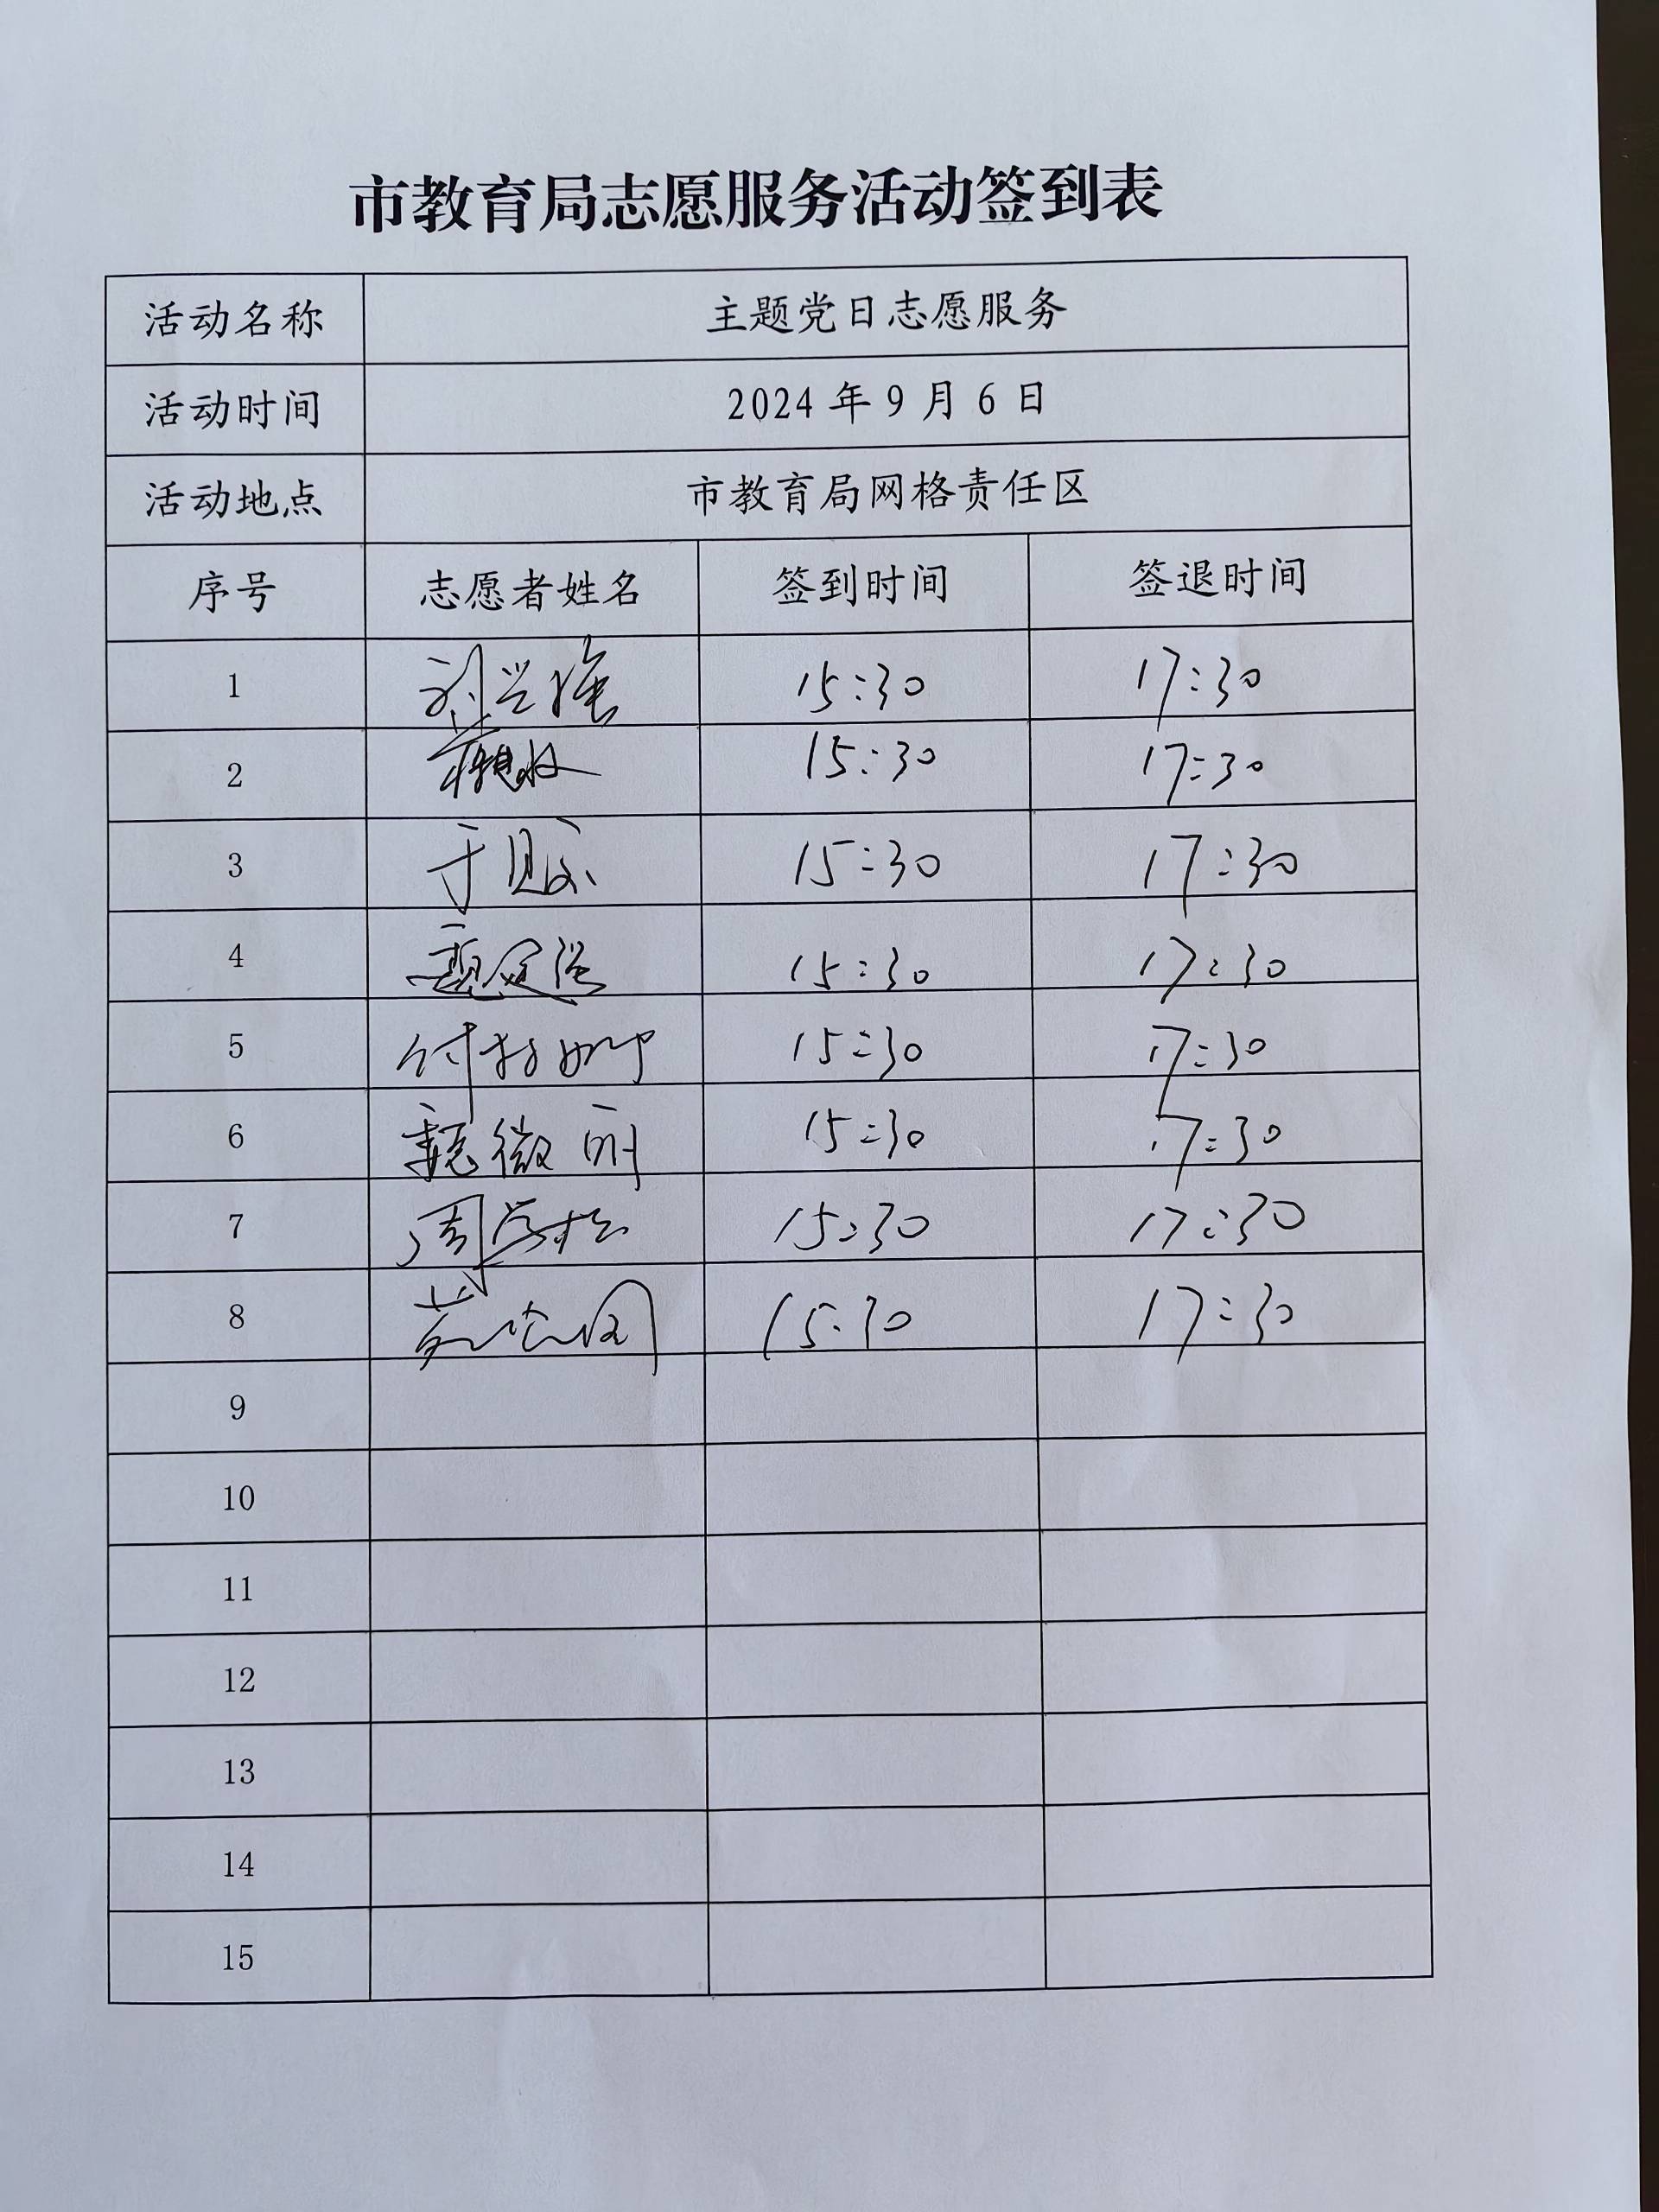 市教育局志愿服务活动签到表
活动名称 主题党日志愿服务
活动时间 2024年9月6日
活动地点 市教育局网格责任区
序号 志愿者姓名 签到时间 签退时间
1 刘兴隆 15:30 17:30
2 15:30 17:30
3 于 15:30 17:30
4 15:30 17:30
5 付 15:30 17:30
6 魏微 15:30 17:30
7 周学松 15:30 17:30
8 15:30 17:30
9
10
11
12
13
14
15